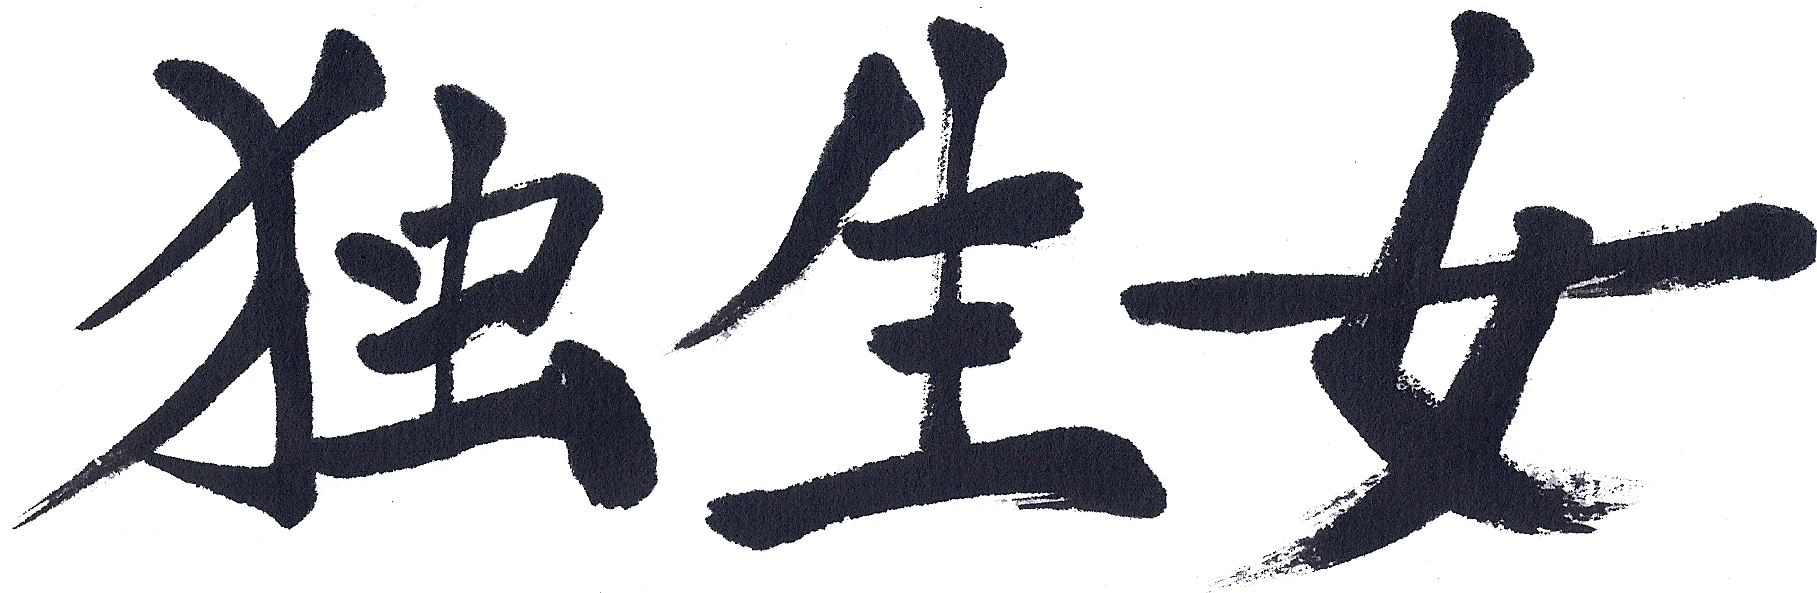 独生女